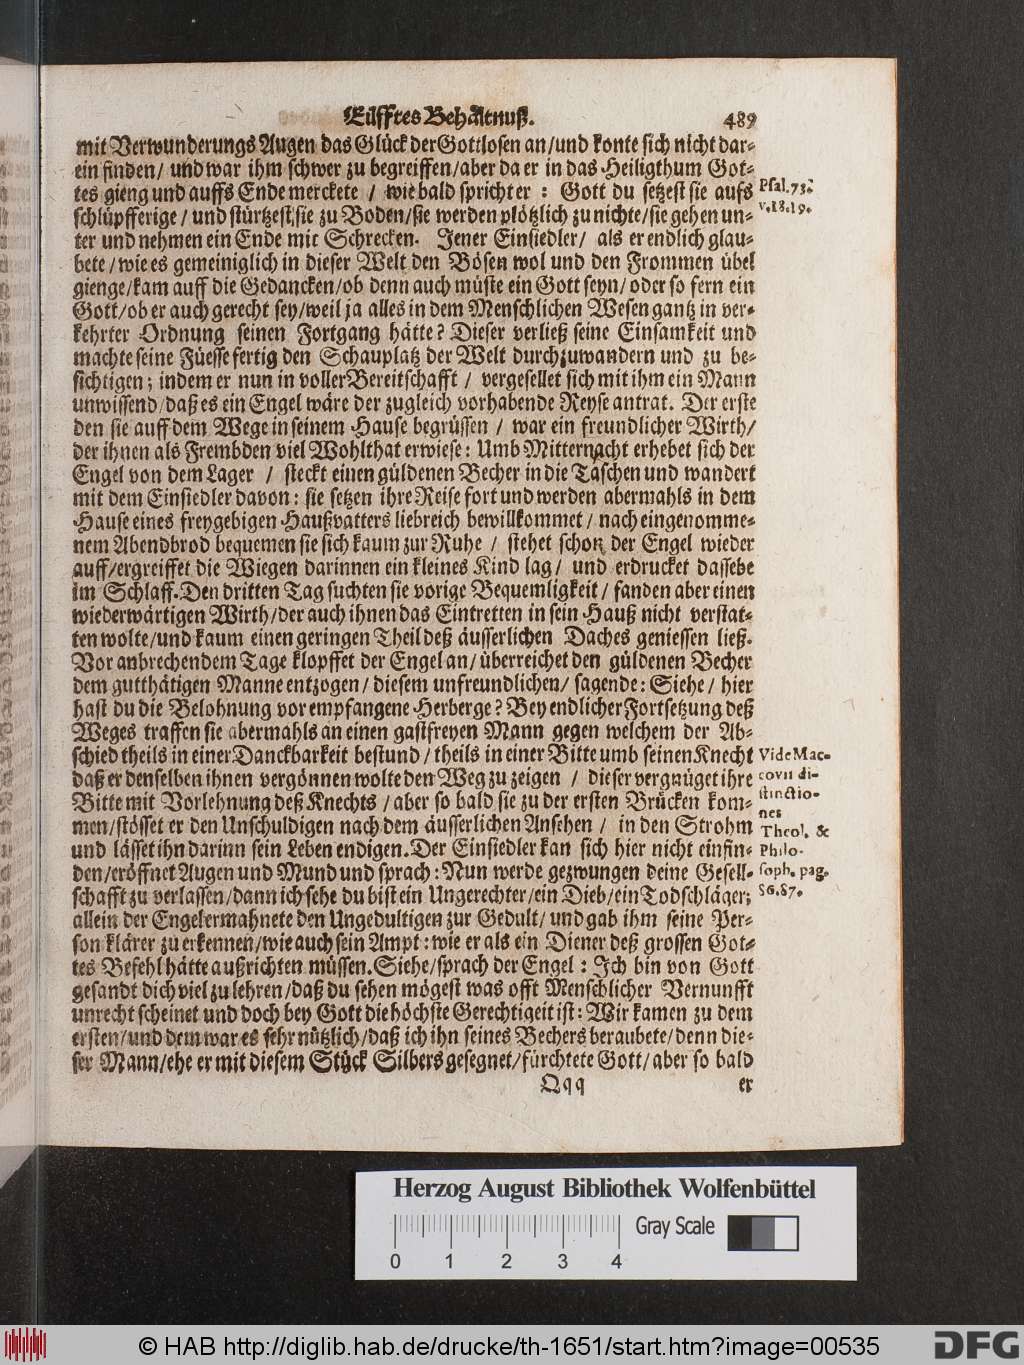 Eilfftes Behältnuß. 489
mit Verwunderungs Augen das Glück der Gottlosen an/und konte sich nicht dar-
ein finden/ und war ihm schwer zu begreiffen/aber da er in das Heiligthum Got-
tes gieng und auffs Ende merckete / wie bald spricht er : Gott du setzest sie aufs
Psal. 73.
schlüpfferige / und stürtzest sie zu Boden/sie werden plötzlich zu nichte/sie gehen un-
v. 18. 19.
ter und nehmen ein Ende mit Schrecken. Jener Einsiedler/ als er endlich glau-
bete / wie es gemeiniglich in dieser Welt den Bösen wol und den Frommen übel
gienge/kam auff die Gedancken/ob denn auch müste ein Gott seyn/ oder so fern ein
Gott/ob er auch gerecht sey/weil ja alles in dem Menschlichen Wesen gantz in ver-
kehrter Ordnung seinen Fortgang hätte? Dieser verließ seine Einsamkeit und
machte seine Füesse fertig den Schauplatz der Welt durchzuwandern und zu be-
sichtigen; indem er nun in voller Bereitschafft / vergesellet sich mit ihm ein Mann
unwissend/daß es ein Engel wäre der zugleich vorhabende Reyse antrat. Der erste
den sie auff dem Wege in seinem Hause begrüssen / war ein freundlicher Wirth/
der ihnen als Frembden viel Wohlthat erwiese: Umb Mitternacht erhebet sich der
Engel von dem Lager / steckt einen güldenen Becher in die Taschen und wandert
mit dem Einsiedler davon: sie setzen ihre Reise fort und werden abermahls in dem
Hause eines freygebigen Haußvatters liebreich bewillkommet / nach eingenomme-
nem Abendbrod bequemen sie sich kaum zur Ruhe / stehet schon der Engel wieder
auff/ergreiffet die Wiegen darinnen ein kleines Kind lag/ und erdrucket dassebe
im Schlaff. Den dritten Tag suchten sie vorige Bequemligkeit / fanden aber einen
wiederwärtigen Wirth/der auch ihnen das Eintretten in sein Hauß nicht verstat-
ten wolte/und kaum einen geringen Theil deß äusserlichen Daches geniessen ließ.
Vor anbrechendem Tage klopffet der Engel an/überreichet den güldenen Becher
dem gutthätigen Manne entzogen / diesem unfreundlichen/ sagende: Siehe / hier
hast du die Belohnung vor empfangene Herberge? Bey endlicher Fortsetzung deß
Weges traffen sie abermahls an einen gastfreyen Mann gegen welchem der Ab-
schied theils in einer Danckbarkeit bestund / theils in einer Bitte umb seinen Knecht
Vide Mac-
daß er denselben ihnen vergönnen wolte den Weg zu zeigen / dieser vergnüget ihre
covii di-
Bitte mit Vorlehnung deß Knechts / aber so bald sie zu der ersten Brücken kom-
stinctio-
nes
men/stösset er den Unschuldigen nach dem äusserlichen Ansehen / in den Strohm
Theol. &
und lässet ihn darinn sein Leben endigen. Der Einsiedler kan sich hier nicht einfin-
Philo-
den/eröffnet Augen und Mund und sprach: Nun werde gezwungen deine Gesell-
soph. pag.
schafft zu verlassen/dann ich sehe du bist ein Ungerechter/ein Dieb/ein Todschläger;
86. 87.
allein der Engel ermahnete den Ungedultigen zur Gedult/ und gab ihm seine Per-
son klärer zu erkennen/wie auch sein Ampt: wie er als ein Diener deß grossen Got-
tes Befehl hätte außrichten müssen. Siehe/sprach der Engel : Ich bin von Gott
gesandt dich viel zu lehren/daß du sehen mögest was offt Menschlicher Vernunfft
unrecht scheinet und doch bey Gott die höchste Gerechtigeit ist: Wir kamen zu dem
ersten/und dem war es sehr nützlich/daß ich ihn seines Bechers beraubete/denn die-
ser Mann/ehe er mit diesem Stück Silbers gesegnet/fürchtete Gott/aber so bald
Qqq er
Herzog August Bibliothek Wolfenbüttel
Gray Scale
0 1 2 3 4
© HAB http://diglib.hab.de/drucke/th-1651/start.htm?image=00535
DFG